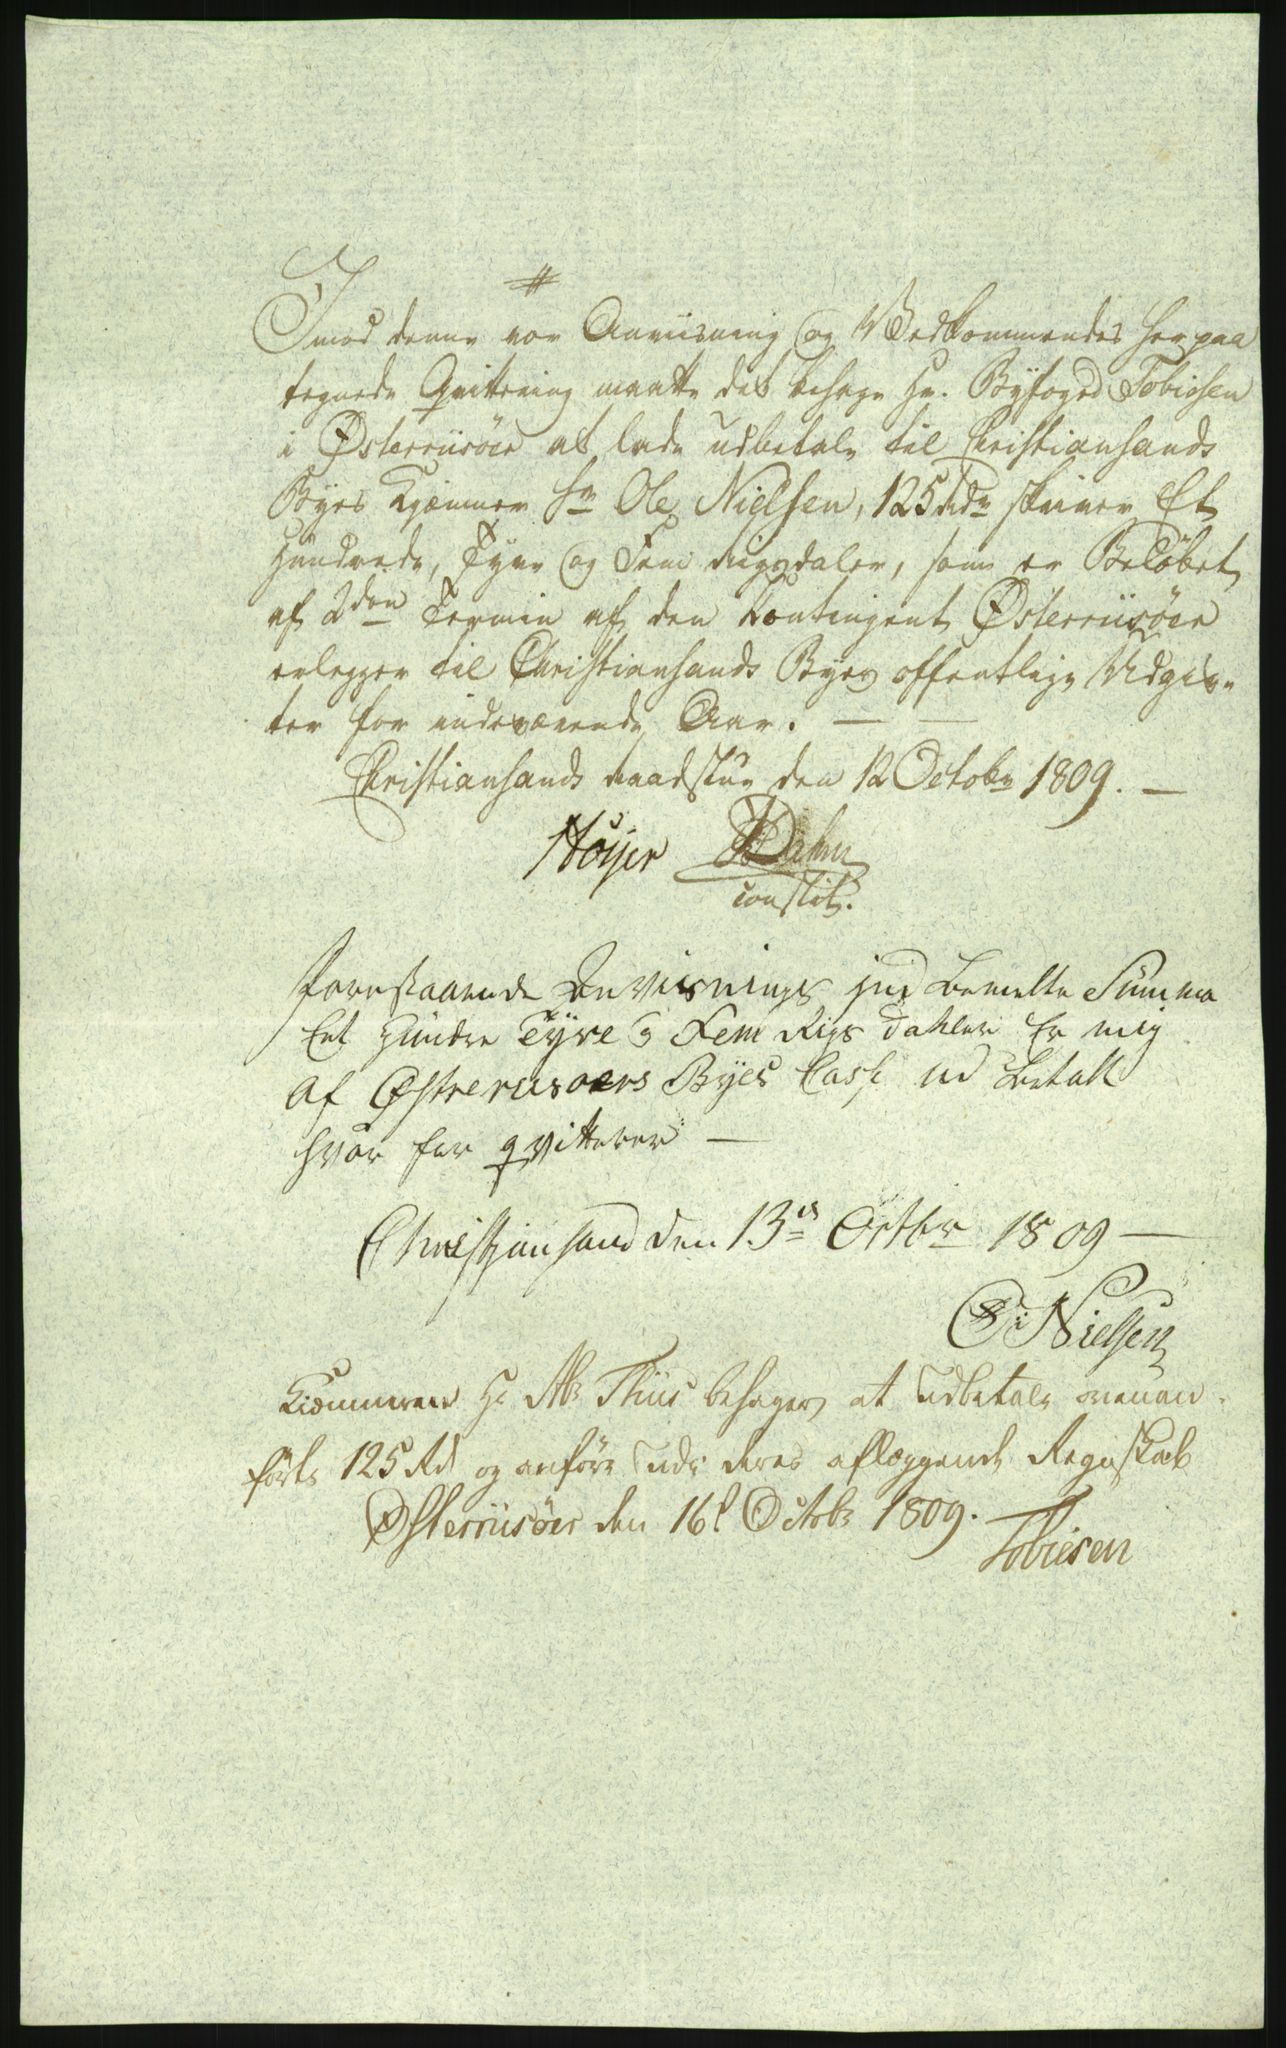 Imod denne vor Anviisning og Vedkommendes her paa
tegnede Qvittering maatte det behage Hr. Byfoged Tobiesen
i Østerriisöer at lade udbetale til Christiansands
Byes Kjæmner Sr Ole Nielsen, 125 Rdr skriver Et
Hundrede, Tyve og Fem Rigsdaler, som er Belöbet
af 2den Termin af den Contingent Østerriisöer
erlegger til Christiansands Byes offentlige Udgiv-
ter for indeværende Aar. — —
Christiansands Raadstue den 12 Octobr 1809. —
Höyer Dahm
constit.
Forestaaende Anvisnings bemelte Summa
Eet Hundre Tyve og Fem Rigs Dahler Er mig
af Østrerusoers Byes Casse ud betalt
hvor for qvitterer —
Christiansand den 13de Octbr 1809 —
O: Nielsen
Kiæmneren Hr Ab: Thiis behager at udbetale ovenan-
förte 125 Rd og anföre udi deres aflæggende Regnskab
Østerriisöer den 16d Octobr 1809.
Tobiesen